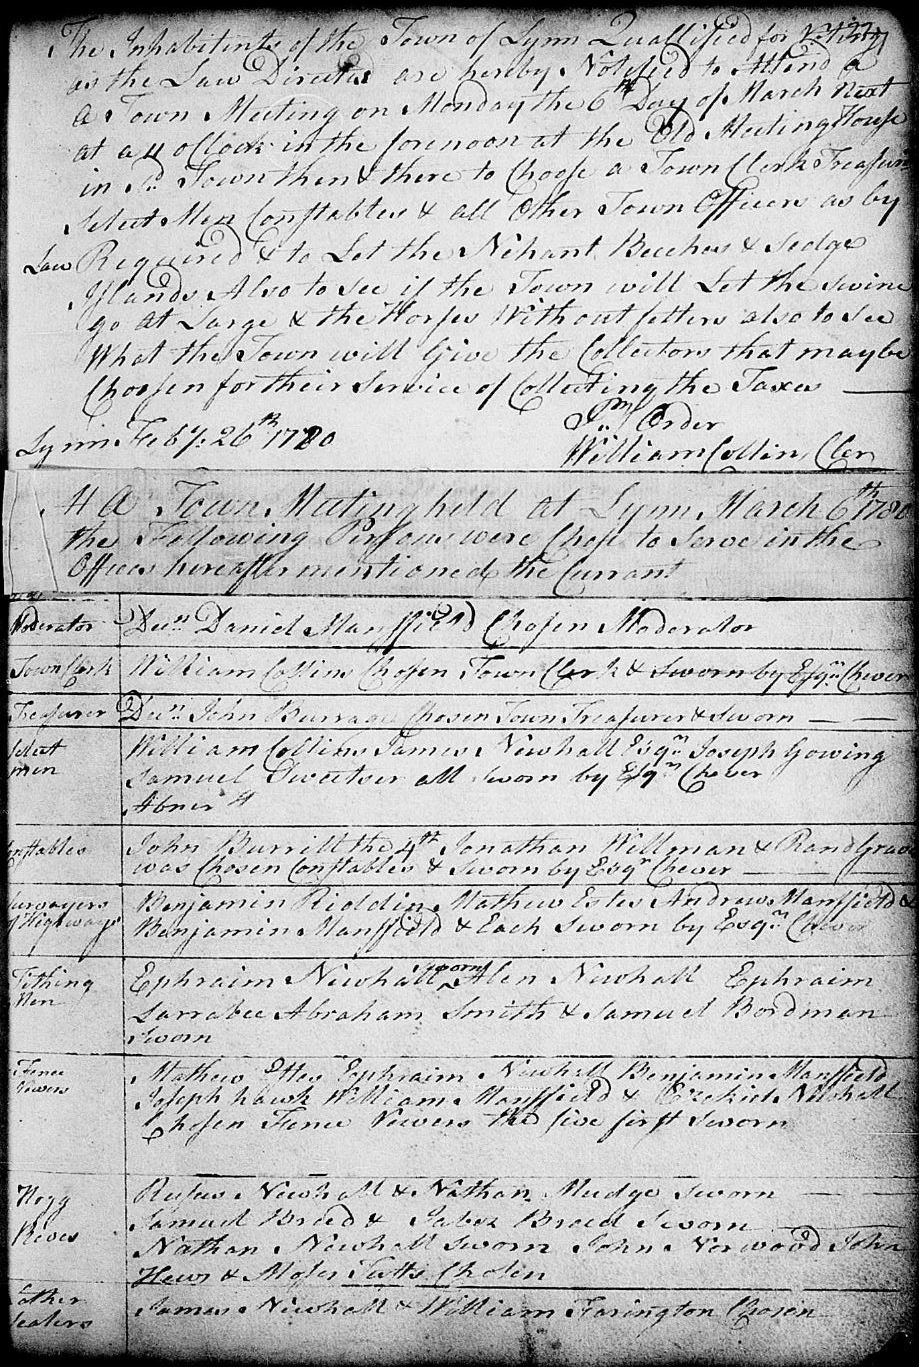 The Inhabitints of the Town of Lynn Quallified for Voting
as the Law Directs are hereby Notefied to Attend a
a Town Meeting on Monday the 6th Day of March Next
at a 11 oClock in the forenoon at the Old Meeting House
in Sd Town then & there to Choose a Town Clerk Treasurer
Select Men Constables & all Other Town Officers as by
Law Required & to Let the Nehant Beeches & Sedge
Islands Also to see if the Town will Let the Swine
go at Large & the Horses Without fetters also to see
What the Town will Give the Collectors that maybe
Choosen for their Service of Collecting the Taxes
Pr Order
Lynn Feby. 26th 1780
William Collins Cler
At A Town Meeting held at Lynn March 6th 1780
the Following Persons were Chose to Serve in the
Offices hereafter mentioned the Currant
Moderator Decn Daniel Mansfield Chosen Moderator
Town Clerk William Collins Chosen Town Clerk & Sworn by Esqr Chever
Treasurer Decn John Burrage Chosen Town Treasurer & Sworn
Select William Collins James Newhall Esqr Joseph Gowing
men Samuel Sweetser all Sworn by Esqr Chever
Abner
Constables John Burrill the 4th Jonathan Willman & Rand Graves
was Chosen Constables & Sworn by Esqr Chever
Survayers Benjamin Riddin Mathew Estes Andrew Mansfield &
of Highways Benjamin Mansfield & Each Sworn by Esqr Chever
Tithing Ephraim Newhall sworn Allen Newhall Ephraim
Men Larrabee Abraham Smith & Samuel Bordman
Sworn
Fence Mathew Estes Ephraim Newhall Benjamin Mansfield
Viewers Joseph Hawk William Mansfield & Ezekiel Newhall
Chosen Fence Viewers the five first Sworn
Hogg Rufus Newhall & Nathan Mudge Sworn
Reves Samuel Breed & Jabez Breed Sworn
Nathan Newhall Sworn John Norwood John
Hews & Moses Tufts Chosen
Lather James Newhall & William Farington Chosen
Sealers